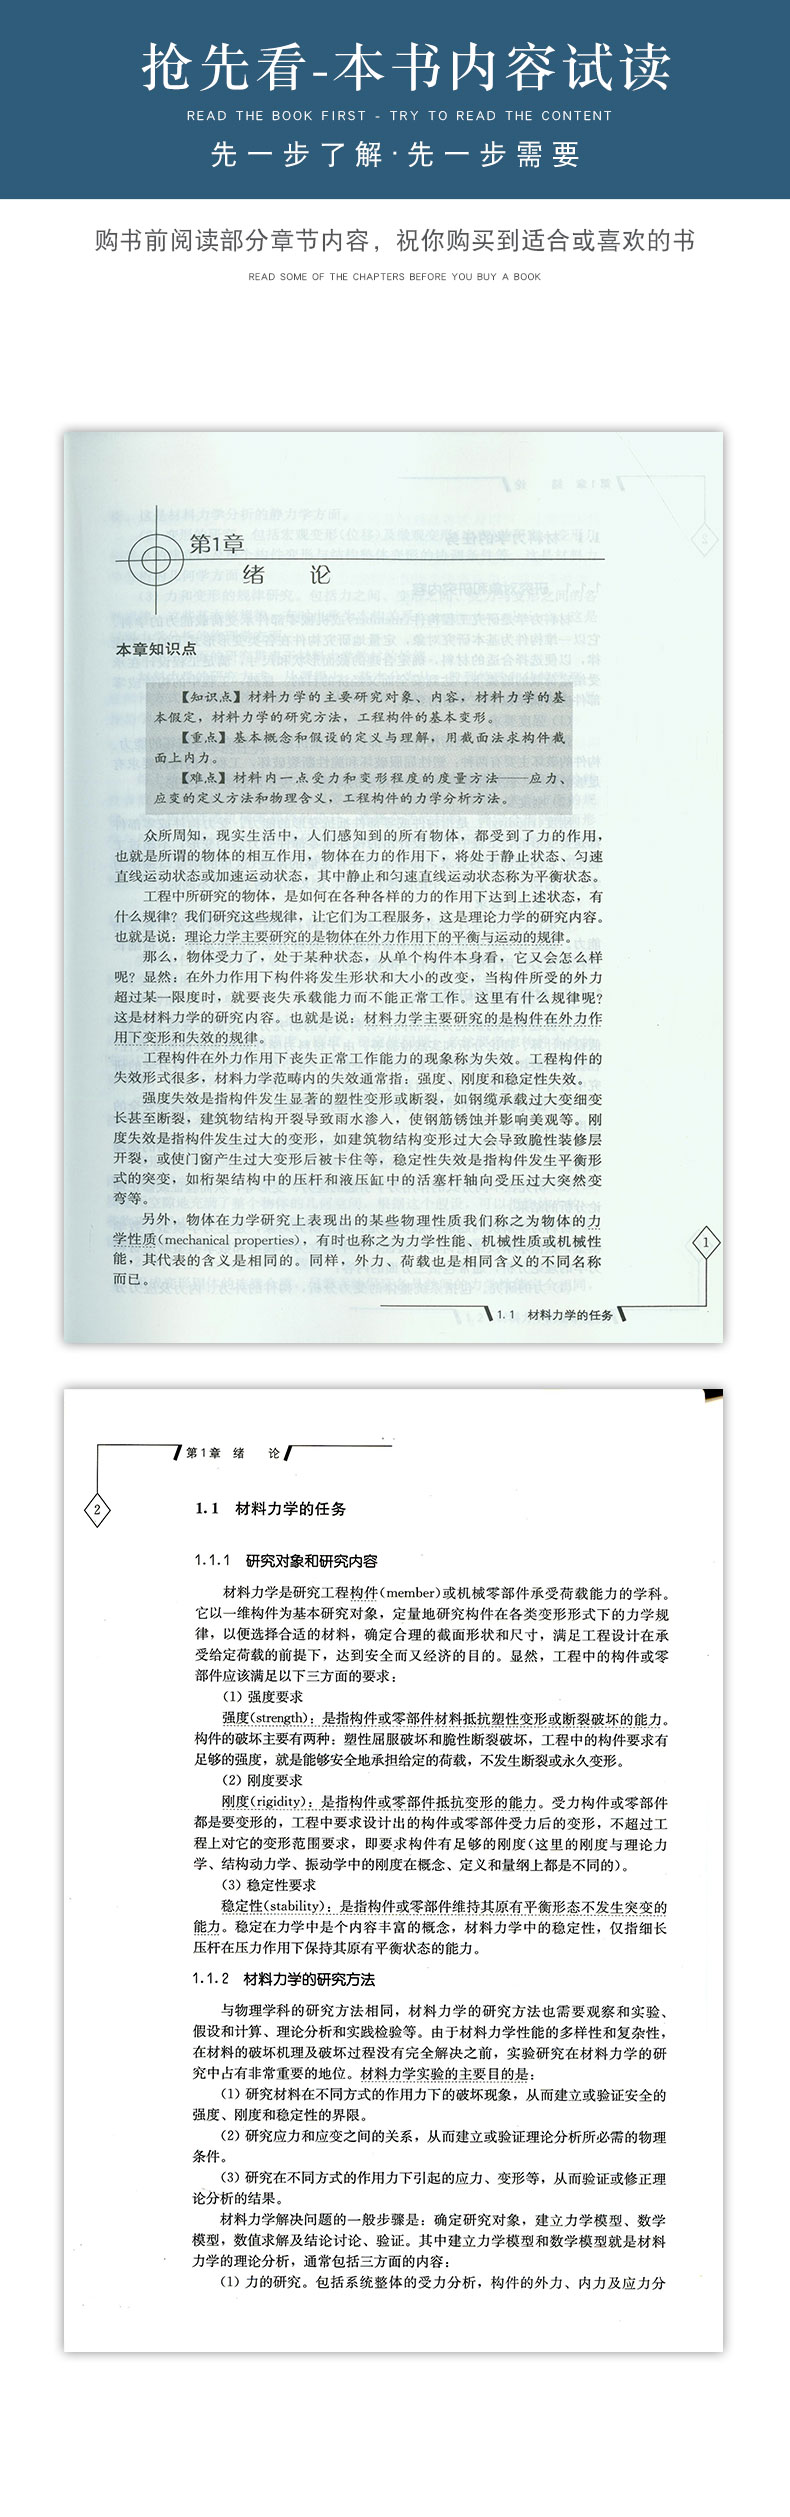 抢先看-本书内容试读
READ THE BOOK FIRST - TRY TO READ THE CONTENT
先一步了解·先一步需要
购书前阅读部分章节内容，祝你购买到适合或喜欢的书
READ SOME OF THE CHAPTERS BEFORE YOU BUY A BOOK
第1章
绪 论
本章知识点
【知识点】材料力学的主要研究对象、内容，材料力学的基
本假定，材料力学的研究方法，工程构件的基本变形。
【重点】基本概念和假设的定义与理解，用截面法求构件截
面上内力。
【难点】材料内一点受力和变形程度的度量方法——应力、
应变的定义方法和物理含义，工程构件的力学分析方法。
众所周知，现实生活中，人们感知到的所有物体，都受到了力的作用，
也就是所谓的物体的相互作用，物体在力的作用下，将处于静止状态、匀速
直线运动状态或加速运动状态，其中静止和匀速直线运动状态称为平衡状态。
工程中所研究的物体，是如何在各种各样的力的作用下达到上述状态，有
什么规律？我们研究这些规律，让它们为工程服务，这是理论力学的研究内容。
也就是说：理论力学主要研究的是物体在外力作用下的平衡与运动的规律。
那么，物体受力了，处于某种状态，从单个构件本身看，它又会怎么样
呢？显然：在外力作用下构件将发生形状和大小的改变，当构件所受的外力
超过某一限度时，就要丧失承载能力而不能正常工作。这里有什么规律呢？
这是材料力学的研究内容。也就是说：材料力学主要研究的是构件在外力作
用下变形和失效的规律。
工程构件在外力作用下丧失正常工作能力的现象称为失效。工程构件的
失效形式很多，材料力学范畴内的失效通常指：强度、刚度和稳定性失效。
强度失效是指构件发生显著的塑性变形或断裂，如钢缆承载过大变细变
长甚至断裂，建筑物结构开裂导致雨水渗入，使钢筋锈蚀并影响美观等。刚
度失效是指构件发生过大的变形，如建筑物结构变形过大会导致脆性装修层
开裂，或使门窗产生过大变形后被卡住等，稳定性失效是指构件发生平衡形
式的突变，如桁架结构中的压杆和液压缸中的活塞杆轴向受压过大突然变
弯等。
另外，物体在力学研究上表现出的某些物理性质我们称之为物体的力
学性质(mechanical properties)，有时也称之为力学性能、机械性质或机械性
能，其代表的含义是相同的。同样，外力、荷载也是相同含义的不同名称
而已。
1
1.1 材料力学的任务
第1章 绪 论
2
1.1 材料力学的任务
1.1.1 研究对象和研究内容
材料力学是研究工程构件(member)或机械零部件承受荷载能力的学科。
它以一维构件为基本研究对象，定量地研究构件在各类变形形式下的力学规
律，以便选择合适的材料，确定合理的截面形状和尺寸，满足工程设计在承
受给定荷载的前提下，达到安全而又经济的目的。显然，工程中的构件或零
部件应该满足以下三方面的要求：
(1) 强度要求
强度(strength)：是指构件或零部件材料抵抗塑性变形或断裂破坏的能力。
构件的破坏主要有两种：塑性屈服破坏和脆性断裂破坏，工程中的构件要求有
足够的强度，就是能够安全地承担给定的荷载，不发生断裂或永久变形。
(2) 刚度要求
刚度(rigidity)：是指构件或零部件抵抗变形的能力。受力构件或零部件
都是要变形的，工程中要求设计出的构件或零部件受力后的变形，不超过工
程上对它的变形范围要求，即要求构件有足够的刚度(这里的刚度与理论力
学、结构动力学、振动学中的刚度在概念、定义和量纲上都是不同的)。
(3) 稳定性要求
稳定性(stability)：是指构件或零部件维持其原有平衡形态不发生突变的
能力。稳定在力学中是个内容丰富的概念，材料力学中的稳定性，仅指细长
压杆在压力作用下保持其原有平衡状态的能力。
1.1.2 材料力学的研究方法
与物理学科的研究方法相同，材料力学的研究方法也需要观察和实验、
假设和计算、理论分析和实践检验等。由于材料力学性能的多样性和复杂性，
在材料的破坏机理及破坏过程没有完全解决之前，实验研究在材料力学的研
究中占有非常重要的地位。材料力学实验的主要目的是：
(1) 研究材料在不同方式的作用力下的破坏现象，从而建立或验证安全的
强度、刚度和稳定性的界限。
(2) 研究应力和应变之间的关系，从而建立或验证理论分析所必需的物理
条件。
(3) 研究在不同方式的作用力下引起的应力、变形等，从而验证或修正理
论分析的结果。
材料力学解决问题的一般步骤是：确定研究对象，建立力学模型、数学
模型，数值求解及结论讨论、验证。其中建立力学模型和数学模型就是材料
力学的理论分析，通常包括三方面的内容：
(1) 力的研究。包括系统整体的受力分析，构件的外力、内力及应力分